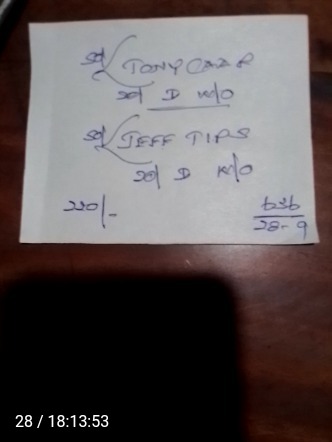 50/ TONY CAAR
20/ D W/O
50/ JEFF TIPS
20/ D W/O
220/-
28-9
28 / 18:13:53